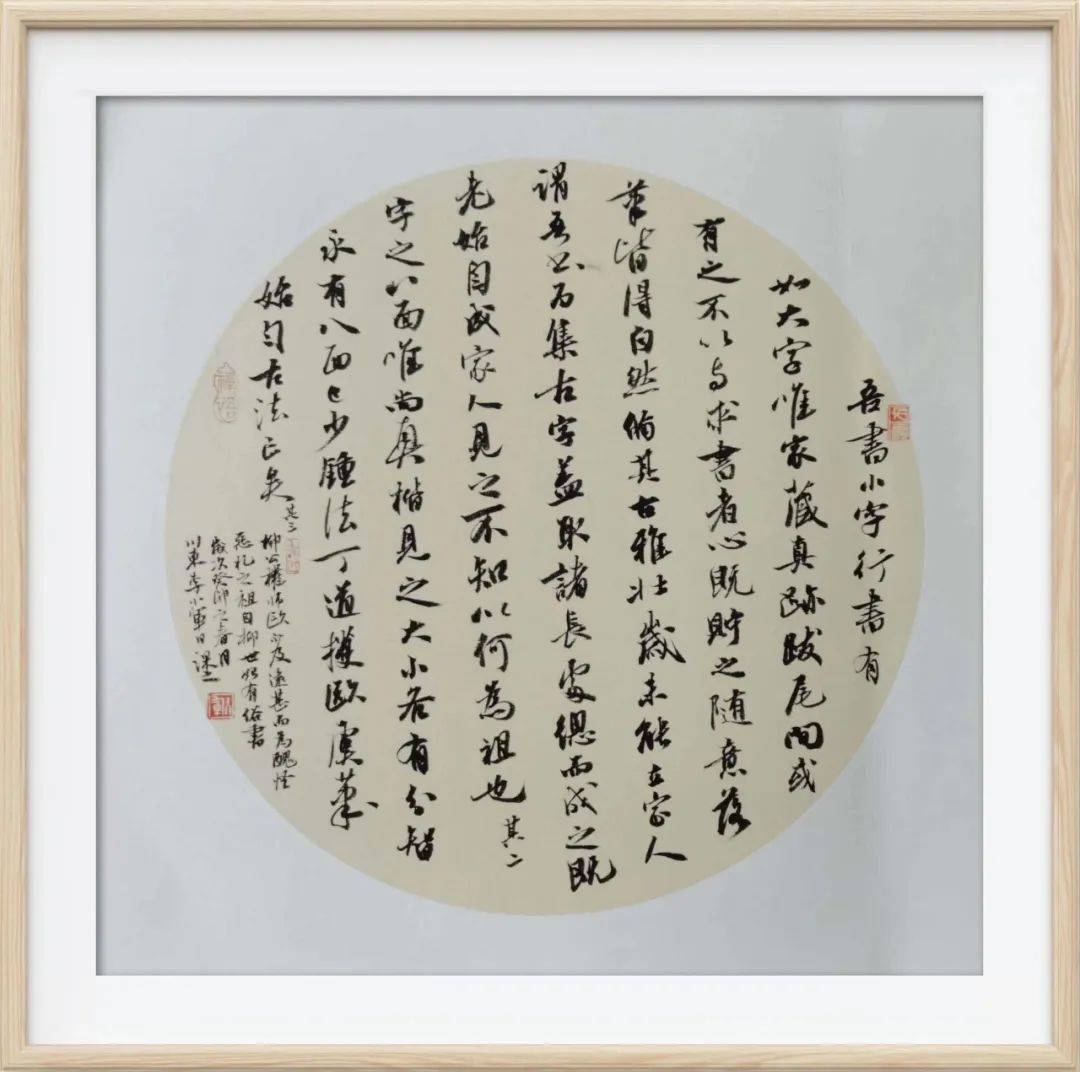 吾書小字行書有
如大字唯家藏真跡跋尾間或
有之不以與求書者心既貯之隨意落
筆皆得自然備其古雅壯歲未能立家人
謂吾書為集古字蓋取諸長處總而成之既
老始自成家人見之不知以何為祖也 其二
字之八面唯尚真楷見之大小各有分智
永有八面已少鍾法丁道護歐虞筆
始勻古法亡矣 其三
柳公權師歐不及遠甚而為醜怪
惡札之祖自柳世始有俗書
歲次癸卯之春月
川東李小軍日課